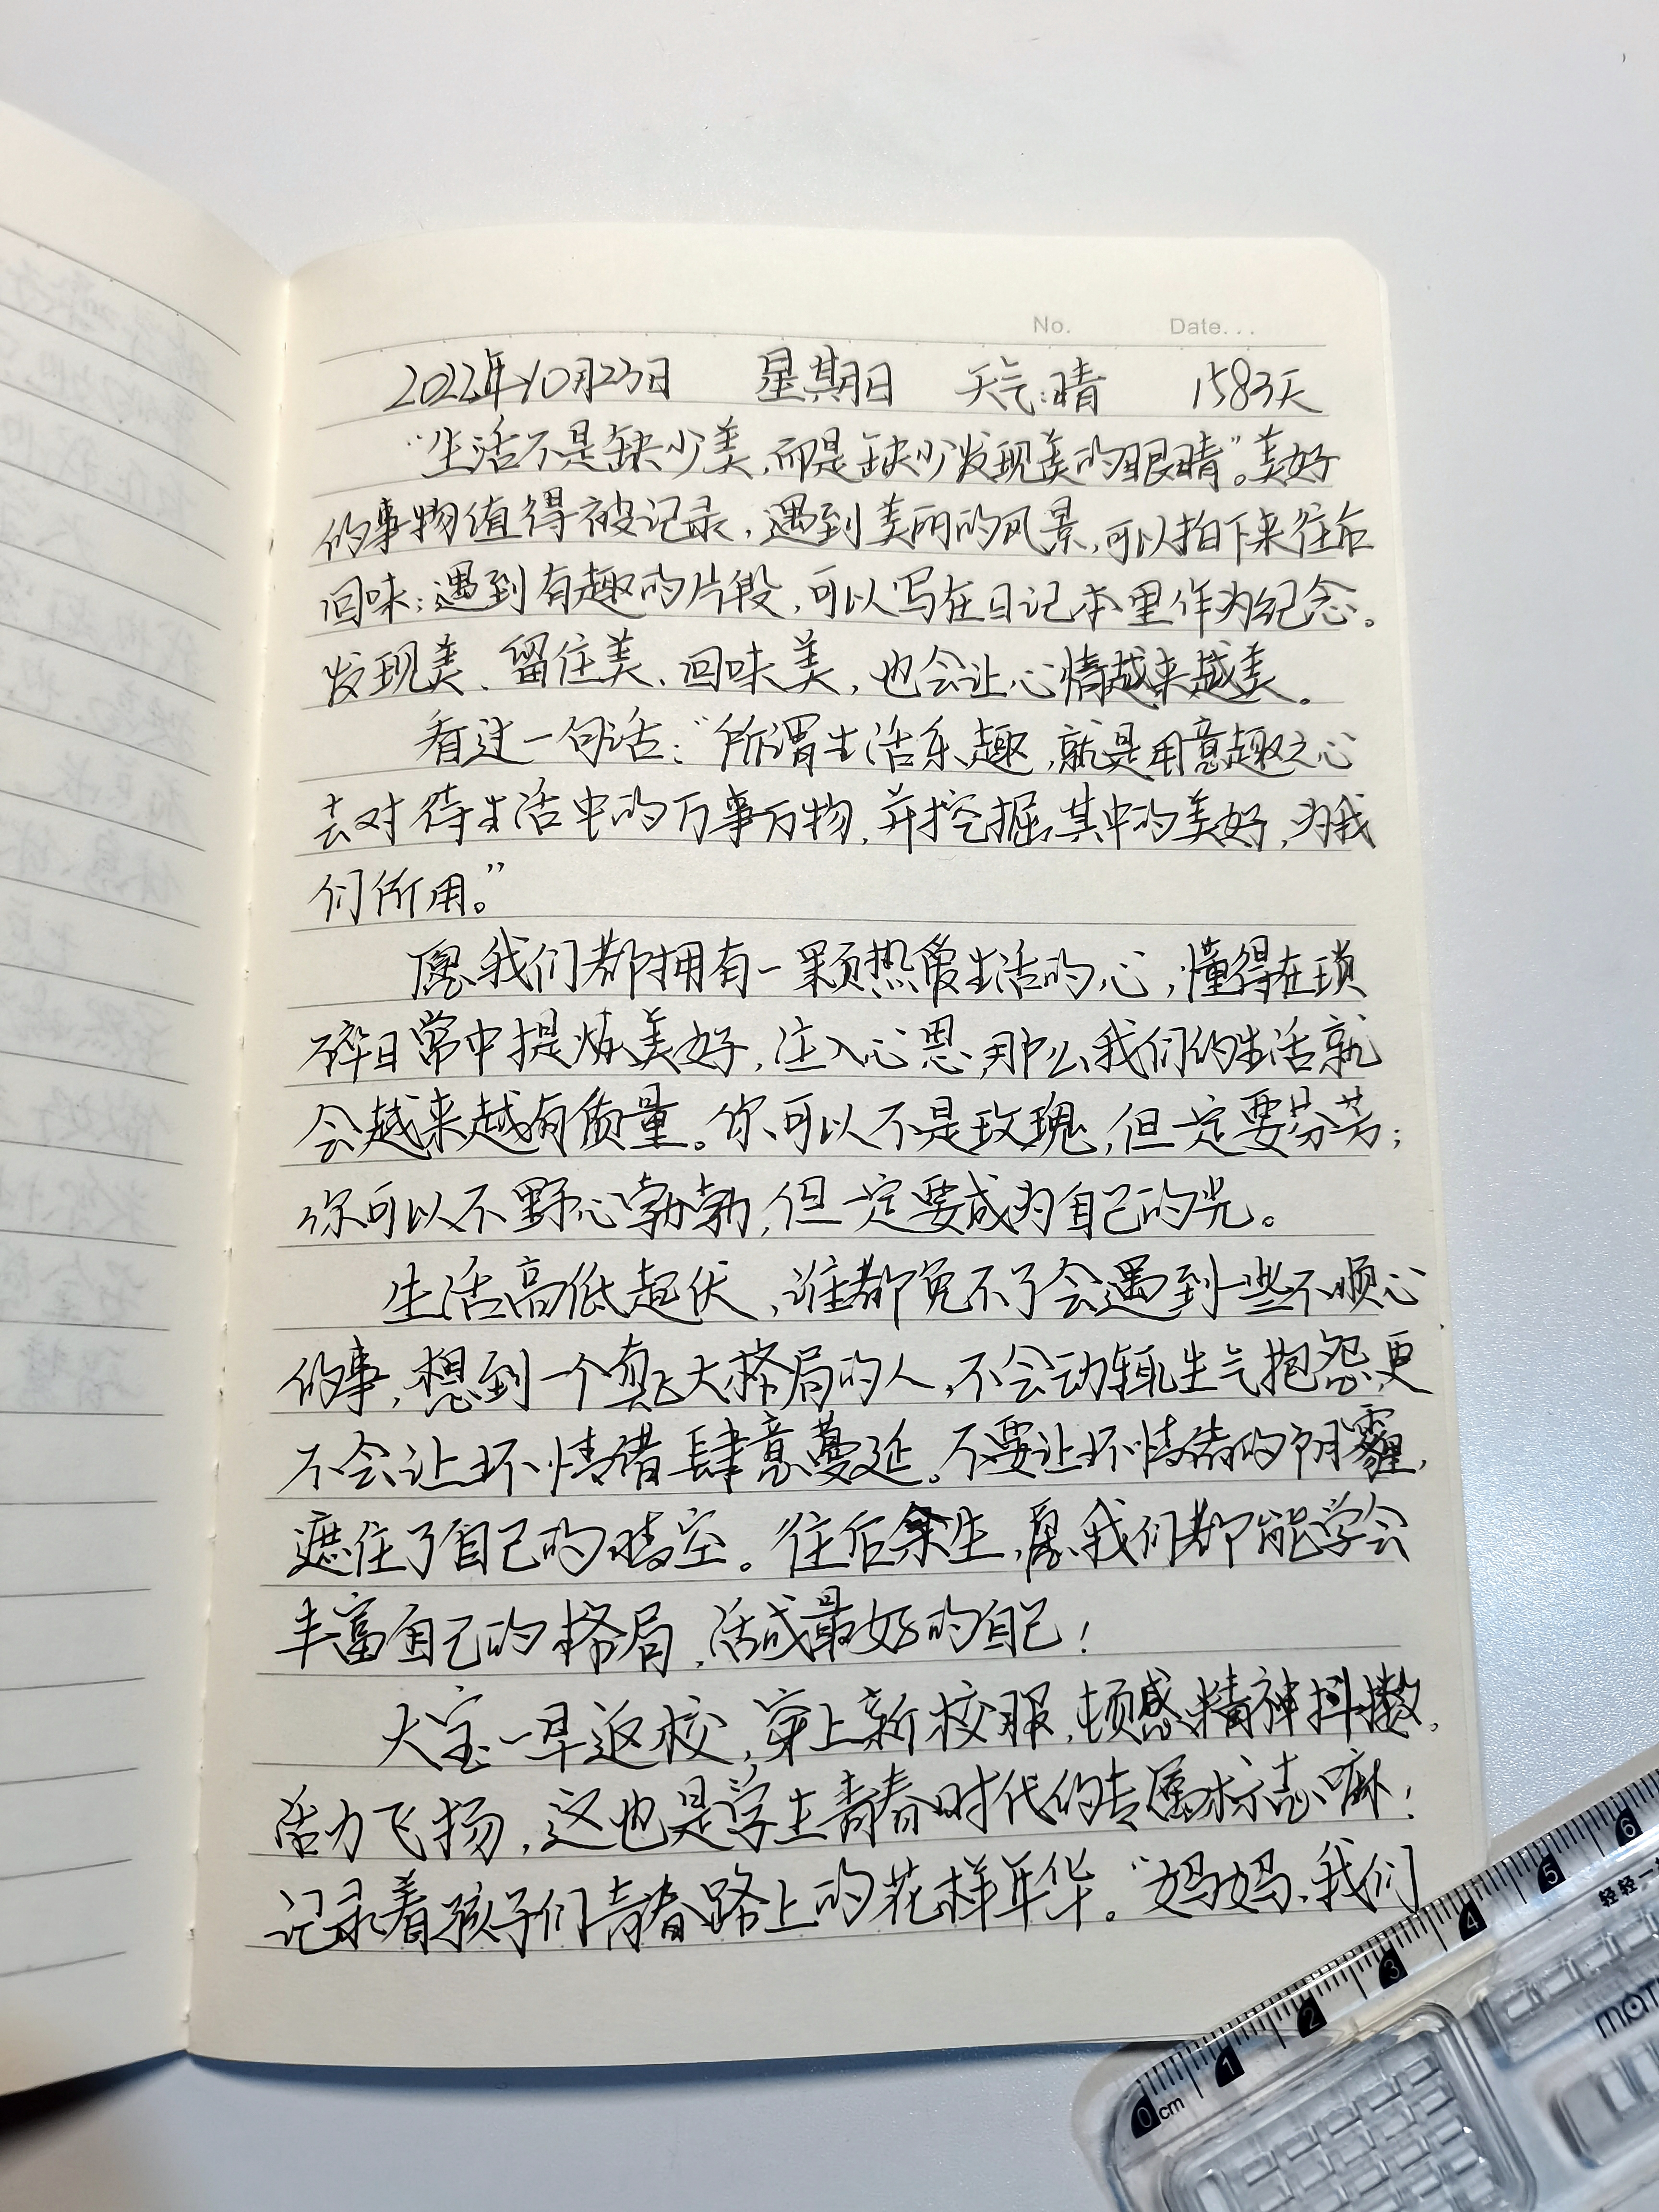 No. Date...
2022年10月23日 星期日 天气:晴 1583天
“生活不是缺少美,而是缺少发现美的眼睛”。美好
的事物值得被记录,遇到美丽的风景,可以拍下来往后
回味;遇到有趣的片段,可以写在日记本里作为纪念。
发现美、留住美、回味美,也会让心情越来越美。
看过一句话:“所谓生活乐趣,就是用意趣之心
去对待生活中的万事万物,并挖掘其中的美好,为我
们所用。”
愿我们都拥有一颗热爱生活的心,懂得在琐
碎日常中提炼美好,注入心思,那么我们的生活就
会越来越有质量。你可以不是玫瑰,但一定要芬芳;
你可以不野心勃勃,但一定要成为自己的光。
生活高低起伏,谁都免不了会遇到一些不顺心
的事,想到一个真正大格局的人,不会动辄生气抱怨,更
不会让坏情绪肆意蔓延。不要让坏情绪的阴霾,
遮住了自己的晴空。往后余生,愿我们都能学会
丰富自己的格局,活成最好的自己!
大宝一早返校,穿上新校服,顿感精神抖擞,
活力飞扬,这也是学生青春时代的专属标志嘛!
记录着孩子们青春路上的花样年华。“妈妈、我们
0 cm 1 2 3 4 5 6
轻轻一